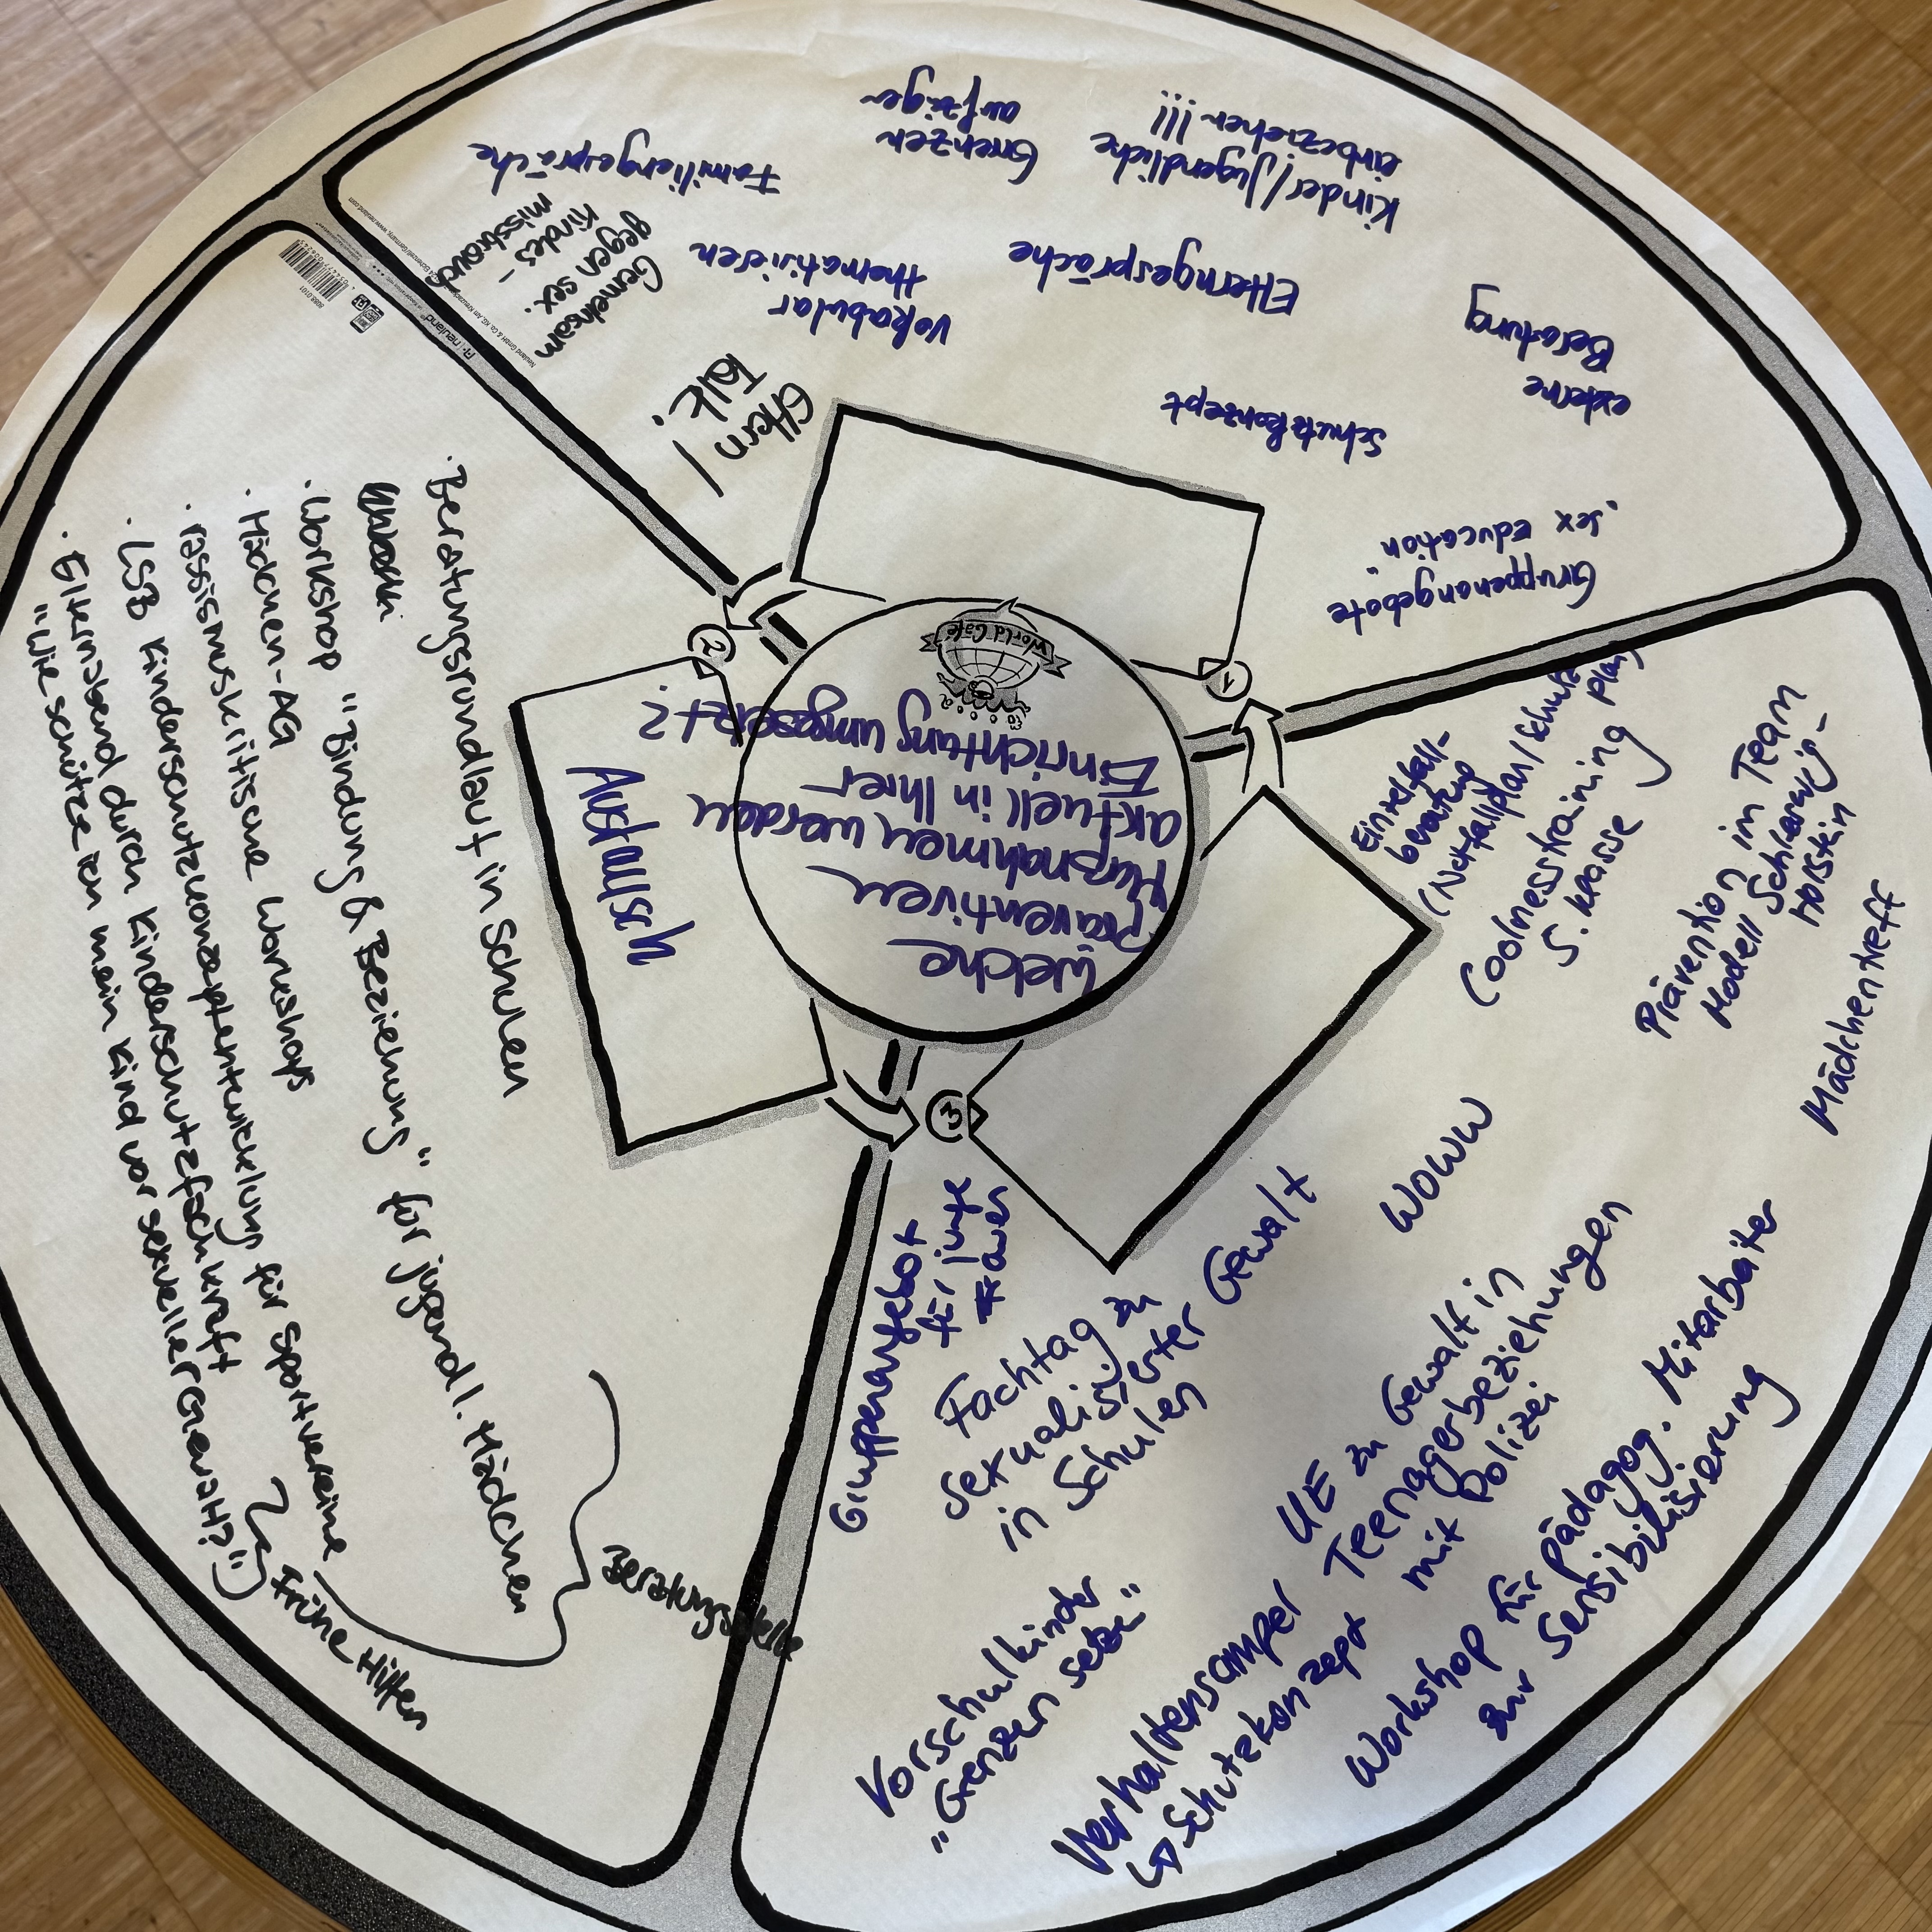 Welche
präventiven
Maßnahmen werden
aktuell in Ihrer
Einrichtung umgesetzt?
World Café
1
2
3
Austausch
Gruppenangebote
"sex education"
Schutzkonzept
externe
Beratung
Elterngespräche
Kinder/Jugendliche
einbeziehen!!!
Grenzen
aufzeigen
Vokabular
thematisieren
Familiengespräche
Eltern /
Talk:
Gemeinsam
gegen sex.
Kindes-
missbrauch
neuland
· Beratungsrundlauf in Schulen
· Workshop "Bindung & Beziehung" für jugendl. Mädchen
· Mädchen-AG
· rassismuskritische Workshops
· LSB Kinderschutzkonzeptentwicklung für Sportvereine
· Elternabend durch Kinderschutzfachkraft
"Wie schütze ich mein Kind vor sexueller Gewalt?"
Beratungsstelle
Frühe Hilfen
Einzelfall-
beratung
(Notfallplan/Schutz
plan)
Coolnesstraining
5. Klasse
Prävention im Team
Modell Schleswig-
Holstein
Mädchentreff
WOWW
Gruppenangebot
für junge
Fachtag zu
sexualisierter Gewalt
in Schulen
UE zu Gewalt in
Teenagerbeziehungen
mit Polizei
Vorschulkinder
"Grenzen setzen"
Verhaltensampel
↳ Schutzkonzept
Workshop für pädagog. Mitarbeiter
zur Sensibilisierung